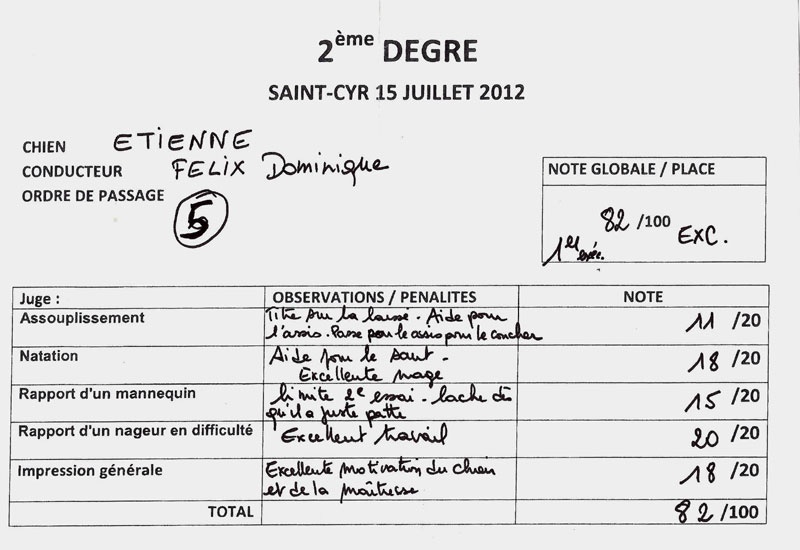 2ème DEGRE
SAINT-CYR 15 JUILLET 2012
CHIEN ETIENNE
CONDUCTEUR FELIX Dominique
ORDRE DE PASSAGE
5
NOTE GLOBALE / PLACE
82 /100 EXC.
1er
Juge : OBSERVATIONS / PENALITES NOTE
Assouplissement Titre sur la laisse - Aide pour 11 /20
l'assis. Passe pour le assis pour le coucher
Natation Aide pour le saut - 18 /20
Excellente nage
Rapport d'un mannequin limite 2e essai - lache dès 15 /20
qu'il a juste patte
Rapport d'un nageur en difficulté Excellent travail 20 /20
Impression générale Excellente motivation du chien 18 /20
et de la maîtresse
TOTAL 82 /100